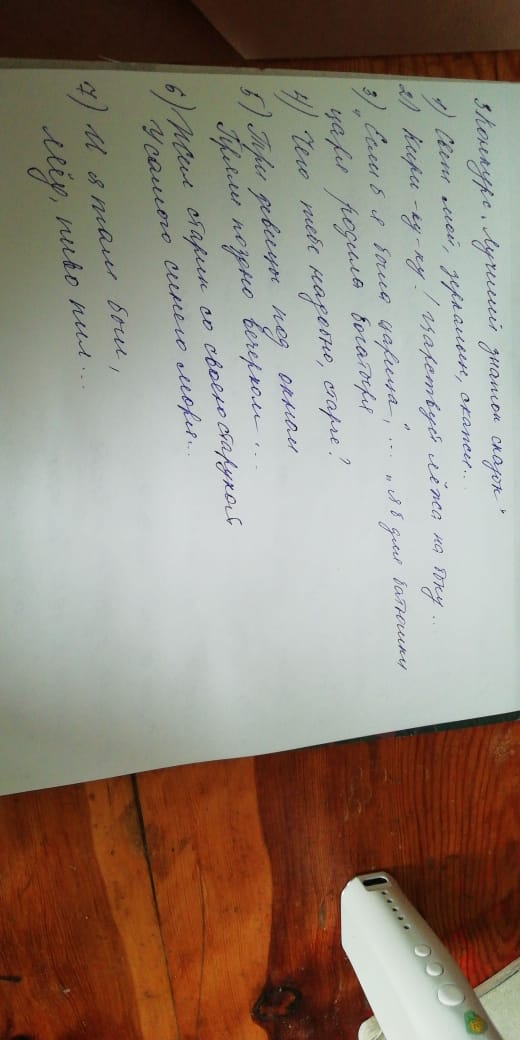 3 Конкурс "Лучший знаток сказок"
1) Свет мой, зеркальце, скажи...
2) Кири-ку-ку! Царствуй лёжа на боку...
3) "Если б я была царица", ... "Я б для батюшки
царя родила богатыря
4) Чего тебе надобно, старче?
5) Три девицы под окном
Пряли поздно вечерком...
6) Жил старик со своею старухой
У самого синего моря...
7) И я там был,
мёд, пиво пил...